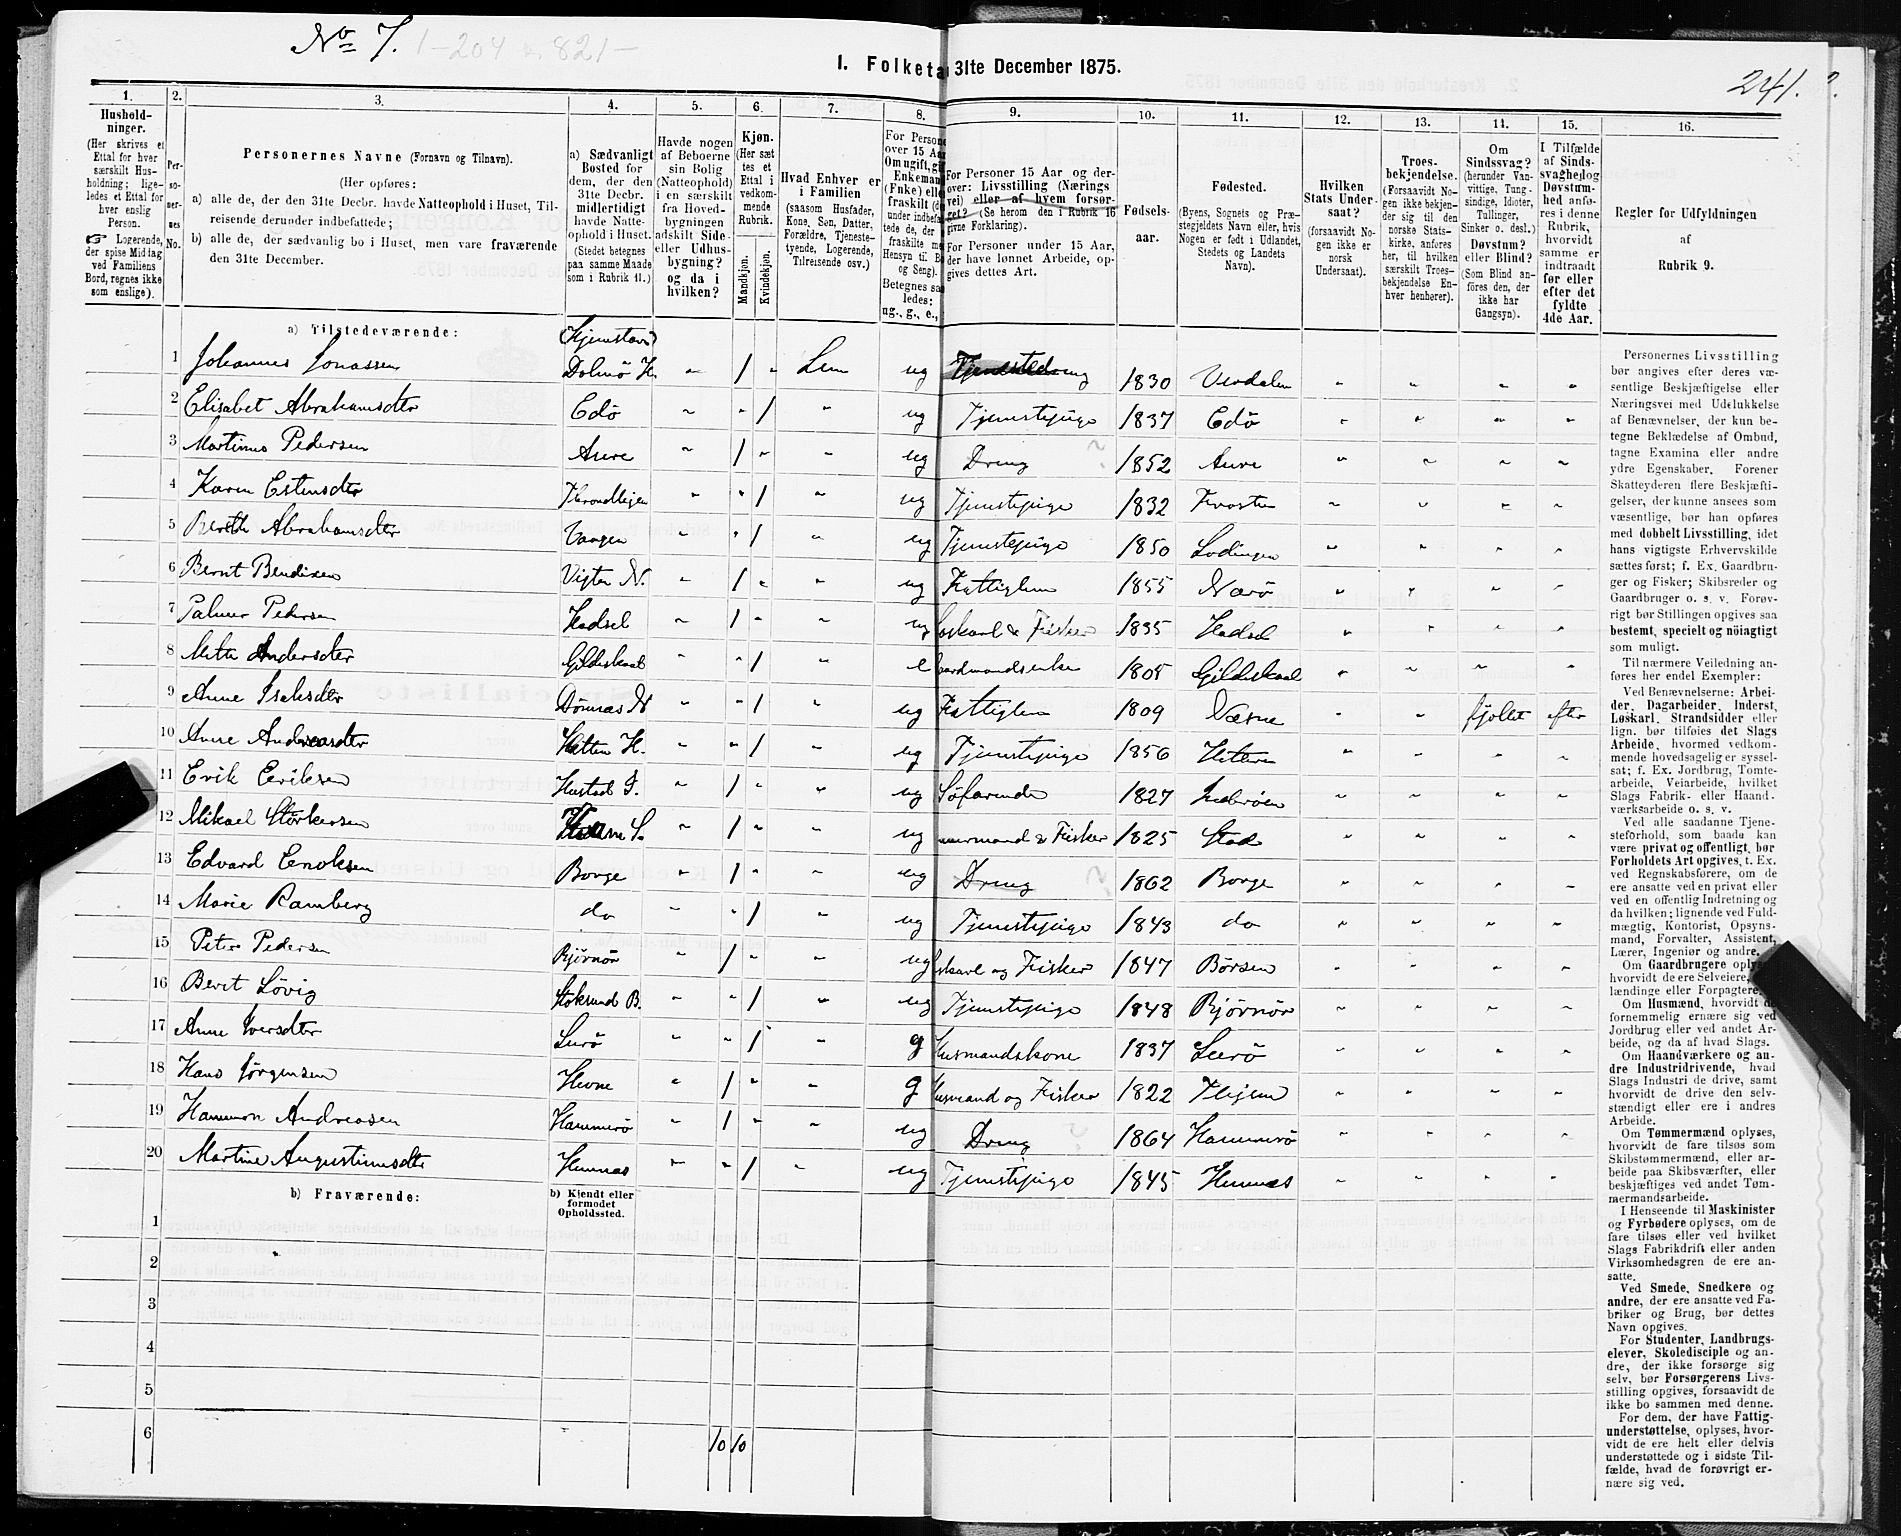 No 7. 1-204 821-
1. Folketa 31te December 1875.
241.
1. 2. 3. 4. 5. 6. 7. 8. 9. 10. 11. 12. 13. 14. 15. 16.
Hushold-
ninger.
(Her skrives et
Ettal for hver
særskilt Hus-
holdning; lige-
ledes et Ettal for
hver enslig
Person.
☞ Logerende,
der spise Middag
ved Familiens
Bord, regnes ikke
som enslige).
Per-
so-
ner-
nes
No.
Personernes Navne (Fornavn og Tilnavn).
(Her opføres:
a) alle de, der den 31te Decbr. havde Natteophold i Huset, Til-
reisende derunder indbefattede;
b) alle de, der sædvanlig bo i Huset, men vare fraværende
den 31te December.
a) Sædvanligt
Bosted for
dem, der den
31te Decbr.
midlertidigt
havde Natte-
ophold i Huset.
(Stedet betegnes
paa samme Maade
som i Rubrik 11.)
Havde nogen
af Beboerne
sin Bolig
(Natteophold)
i en særskilt
fra Hoved-
bygningen
adskilt Side-
eller Udhus-
bygning?
og da i
hvilken?
Kjøn.
(Her sæt
tes et
Ettal i
vedkom-
mende
Rubrik.
Mandkjøn.
Kvindekjøn.
Hvad Enhver er
i Familien
(saasom Husfader,
Kone, Søn, Datter,
Forældre, Tjeneste-
tyende, Logerende,
Tilreisende osv.)
For Persone
over 15 Aar
Om ugift, gif
Enkeman
(Fnke) elle
fraskilt (de
under indbefat
tede de, der
fraskilte me
Hensyn til Bo
og Seng).
Betegnes saa
ledes:
ug., g., e.,
For Personer 15 Aar og der-
over: Livsstilling (Nærings
vei) eller af hvem forsør-
get? (Se herom den i Rubrik 16
givne Forklaring).
For Personer under 15 Aar,
der have lønnet Arbeide, op-
gives dettes Art.
Fødsels-
aar.
Fødested.
(Byens, Sognets og Præ-
stegjeldets Navn eller, hvis
Nogen er født i Udlandet,
Stedets og Landets
Navn).
Hvilken
Stats Under-
saat?
(forsaavidt No-
gen ikke er
norsk
Undersaat).
Troes-
bekjendelse.
(Forsaavidt No-
gen ikke bekjen-
der sig til den
norske Stats-
kirke, anføres
her, til hvilken
særskilt Troes-
bekjendelse En-
hver henhører).
Om
Sindssvag?
(herunder Van-
vittige, Tung-
sindige, Idioter,
Tullinger,
Sinker o. desl.)
Døvstum?
eller Blind?
(Som Blind an-
føres den, der
ikke har
Gangsyn).
I Tilfælde
af Sinds-
svaghed og
Døvstum-
hed anfø-
res i denne
Rubrik,
hvorvidt
samme er
indtraadt
før eller
efter det
fyldte
4de Aar.
Regler for Udfyldningen
af
Rubrik 9.
a) Tilstedeværende:
1 Johannes Jonassen Dolmö H. " 1 " Lem ug 1830 Verdalen " " " "
2 Elisabet Abrahamsdtr Edö " " 1 " ug Tjenestepige 1837 Edö " " " "
3 Martinus Pedersen Aure " 1 " " ug Dreng 1852 Aure " " " "
4 Karen Estensdtr Throndhjem " " 1 " ug Tjenstepige 1832 Frosten " " " "
5 Berith Abrahamsdtr Vaagen " " 1 " ug Tjenstepige 1850 Lodingen " " " "
6 Bernt Bendixen Vigten N. " 1 " " ug Fattiglem 1855 Nærö " " " "
7 Palmer Pedersen Hadsel " 1 " " ug oskarl & Fisker 1835 Hadsel " " " "
8 Mette Andersdter Gildeskaal " " 1 " e aardmandsenke 1805 Gildeskaal " " " "
9 Anne Isaksdtr Dönnæs N " " 1 " ug Fattiglem 1809 Næsne " " fjollet efter
10 Anne Andreasdtr Hitteren H. " " 1 " ug Tjenstepige 1856 Hitteren " " " "
11 Erik Eriksen Hustad I. " 1 " " ug Søfarende 1827 Inderöen " " " "
12 Mikael Størkersen " 1 " " ug uurmand & Fisker 1825 Stod " " " "
13 Edvard Enoksen Borge " 1 " " ug Dreng ? 1862 Borge " " " "
14 Marie Ramberg do " " 1 " ug Tjenstepige 1843 do " " " "
15 Peter Pedersen Bjørnør " 1 " " ug skarl og Fisker 1847 Börsen " " " "
16 Berit Lövig Stoksund B. " " 1 " ug Tjenstepige 1848 Bjørnör " " " "
17 Anne Iversdtr Lurö " " 1 " g Husmandskone 1837 Lurö " " " "
18 Hans Jørgensen Hevne " 1 " " g usmand og Fisker 1822 " " " "
19 Hammon Andreasen Hammerö " 1 " " ug Dreng ? 1864 Hammerö " " " "
20 Martine Augustinusdtr Hemnæs " " 1 " ug Tjenstepige 1845 Hemnes " " " "
b) Fraværende:
b) Kjendt eller
formodet
Opholdssted.
1
2
3
4
5
6 10 10
Personernes Livsstilling
bør angives efter deres væ-
sentlige Beskjæftigelse eller
Næringsvei med Udelukkelse
af Benævnelser, der kun be-
tegne Beklædelse af Ombud,
tagne Examina eller andre
ydre Egenskaber. Forener
Skatteyderen flere Beskjæfti-
gelser, der kunne ansees som
væsentlige, bør han opføres
med dobbelt Livsstilling, idet
hans vigtigste Erhvervskilde
sættes først; f. Ex. Gaardbru-
ger og Fisker; Skibsreder og
Gaardbruger o. s. v. Forøv-
rigt bør Stillingen opgives saa
bestemt, specielt og nöiagtigt
som muligt.
Til nærmere Veiledning an-
føres her endel Exempler:
Ved Benævnelserne: Arbei-
der, Dagarbeider, Inderst,
Løskarl, Strandsidder eller
lign. bør tilføies det Slags
Arbeide, hvormed vedkom-
mende hovedsagelig er syssel-
sat; f. Ex. Jordbrug, Tomte-
arbeide, Veiarbeide, hvilket
Slags Fabrik- eller Haand-
værksarbeide o. s. v.
Ved alle saadanne Tjene-
steforhold, som baade kan
være privat og offentligt, bør
Forholdets Art opgives, t. Ex.
ved Regnskabsførere, om de
ere ansatte ved en privat eller
ved en offentlig Indretning og
da hvilken; lignende ved Fuld-
mægtig, Kontorist, Opsyns-
mand, Forvalter, Assistent,
Lærer, Ingeniør og andre.
Om Gaardbrugere oplys
hvorvidt de ere Selveiere,
lændinge eller Forpagtere.
Om Husmænd, hvorvidt de
fornemmelig ernære sig ved
Jordbrug eller ved andet Ar-
beide, og da af hvad Slags.
Om Haandværkere og an-
dre Industridrivende, hvad
Slags Industri de drive, samt
hvorvidt de drive den selv-
stændigt eller ere i andres
Arbeide.
Om Tømmermænd oplyses,
hvorvidt de fare tilsøs som
Skibstømmermænd, eller ar-
beide paa Skibsværfter, eller
beskjæftiges ved andet Tøm-
mermandsarbeide.
I Henseende til Maskinister
og Fyrbødere oplyses, om de
fare tilsøs eller ved hvilket
Slags Fabrikdrift eller anden
Virksomhedsgren de ere an-
satte.
Ved Smede, Snedkere og
andre, der ere ansatte ved Fa-
briker og Brug, bør dettes
Navn opgives.
For Studenter, Landbrugs-
elever, Skoledisciple og an-
dre, der ikke forsørge sig
selv, bør Forsørgerens Livs-
stilling opgives, forsaavidt de
ikke bo sammen med denne.
For dem, der have Fattig-
understøttelse, oplyses, hvor-
vidt de ere helt eller delvis
understøttede og i sidste Til-
fælde, hvad de forøvrigt er-
nære sig ved.